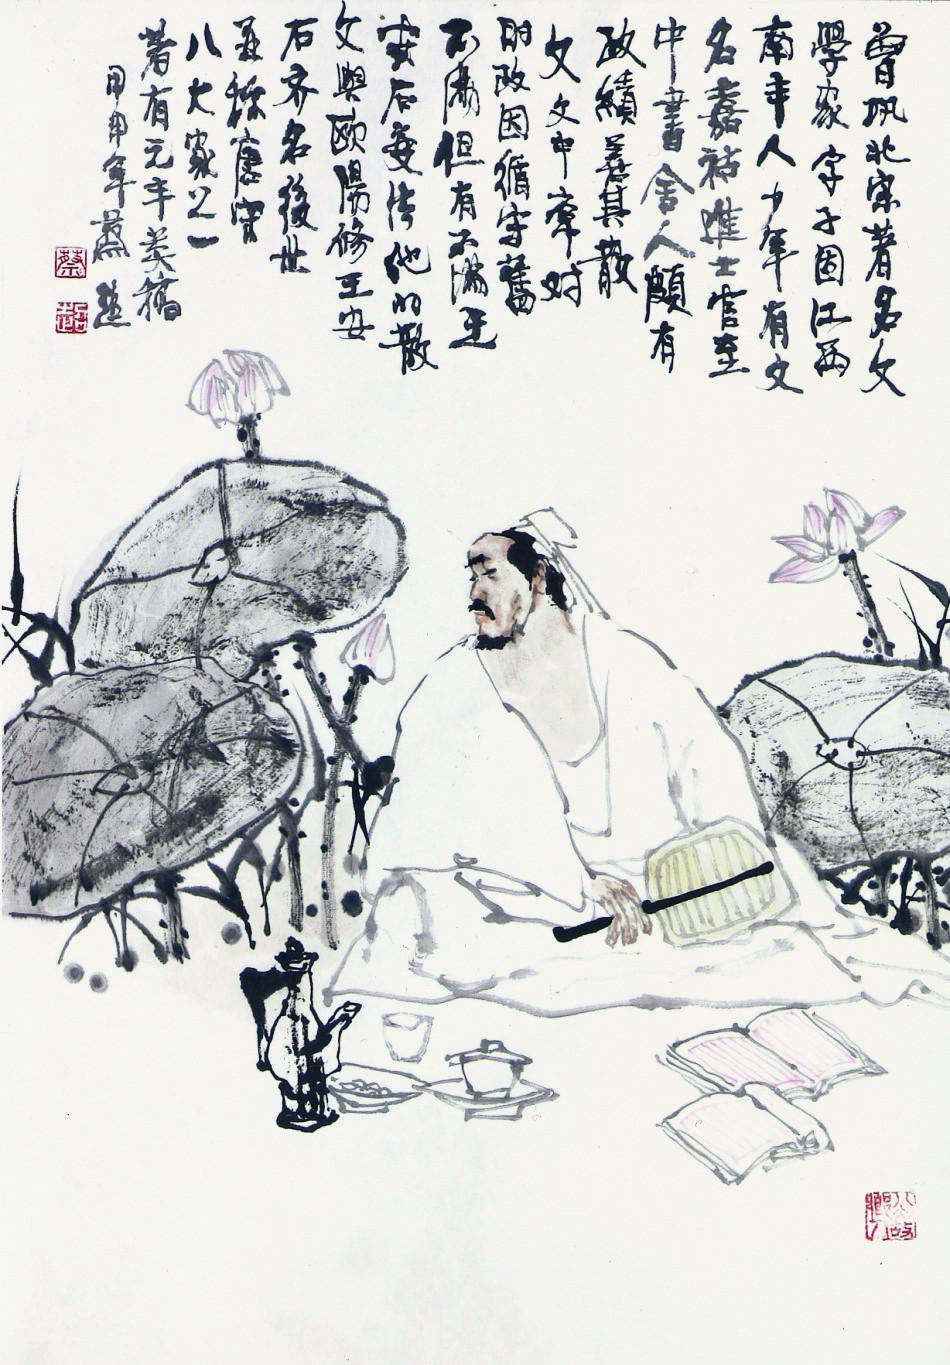 曾巩北宋著名文
學家字子固江西
南丰人少年有文
名嘉祐進士官至
中書舍人頗有
政績善其散
文文中率对
時政因循守舊
不满但有不满王
安石变法他的散
文與歐陽修王安
石齐名後世
並称唐宋
八大家之一
著有元丰类稿
甲申年蔡超